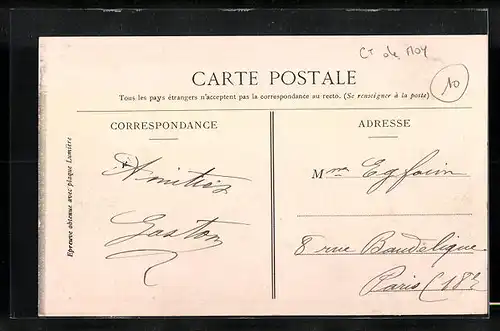 Ct de Moy
10
CARTE POSTALE
Tous les pays étrangers n'acceptent pas la correspondance au recto. (Se renseigner à la poste)
CORRESPONDANCE
ADRESSE
Epreuve obtenue avec plaque Lumière
Amitiés
Gaston
Mme
8 rue Baudelique
Paris (18e